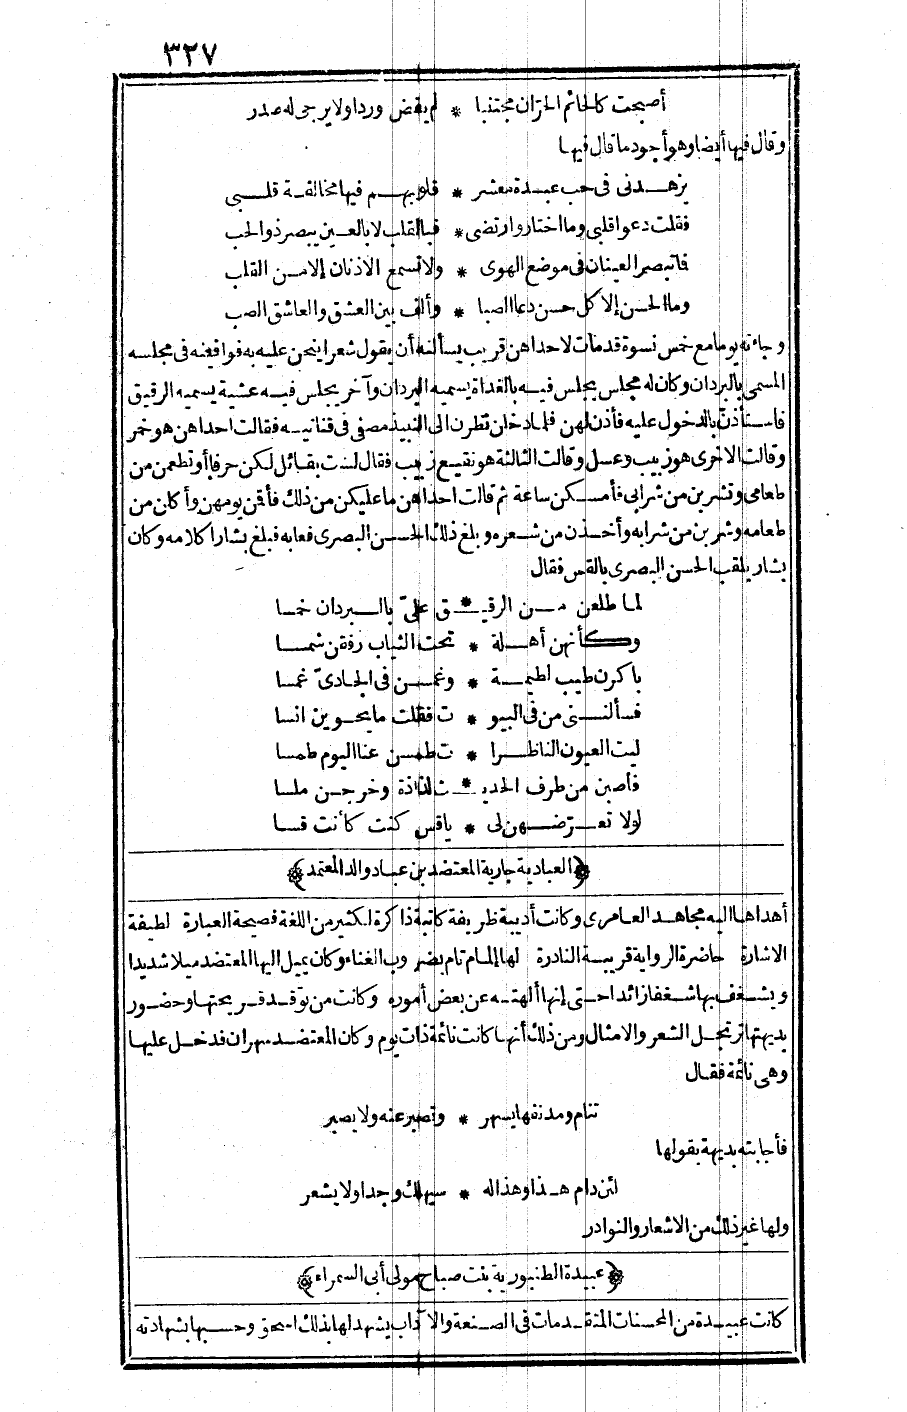 ٣٢٧
أصبحت كالحائم الحرّان مجتنبا * لم يقض وردا ولا يرجى له صدر
وقال فيها أيضا وهو أجود ما قال فيها
يزهدنى فى حب عبيدة معشر * قلوبهم فيها مخالفة قلبى
فقلت دعوا قلبى وما اختار وارتضى * فبالقلب لا بالعين يبصر ذو الحب
فما تبصر العينان فى موضع الهوى * ولا تسمع الاذنان إلا من القلب
وما الحسن إلا كل حسن دعا الصبا * وألف بين العشق والعاشق الصب
وجاءته يوما مع خمس نسوة قد مات لاحداهن قريب يسألنه أن يقول شعرا ينحن عليه به فوافينه فى مجلسه
المسمى بالبردان وكان له مجلس يجلس فيه بالغداة يسميه البردان وآخر يجلس فيه عشية يسميه الرقيق
فاستأذنّ بالدخول عليه فأذن لهن فلما دخلن نظرن الى النبيذ مصفى فى قنانيه فقالت احداهن هو خمر
وقالت الاخرى هو زبيب وعسل وقالت الثالثة هو نقيع زبيب فقال لست بقائل لكن حرفا أو تطعمن من
طعامى وتشربن من شرابى فأمسكن ساعة ثم قالت احداهن ما عليكن من ذلك فأقمن يومهن وأكلن من
طعامه وشربن من شرابه وأخذن من شعره وبلغ ذلك الحسن البصرى فعابه فبلغ بشارا كلامه وكان
بشار يلقب الحسن البصرى بالقس فقال
لما طلعن من الرقيـ * ـق علىّ بالبردان خمسا
وكأنهن أهلة * تحت الثياب زففن شمسا
باكرن طيب لطيمة * وغمسن فى الجادىّ غمسا
فسألننى من فى البيو * ت فقلت ما يحوين انسا
ليت العيون الناظرا * ت طمسن عنا اليوم طمسا
فأصبن من طرف الحديـ * ـث لذاذة وخرجن ملسا
لولا تعرّضهن لى * يا قس كنت كأنت قسا
﴿العبادية جارية المعتضد بن عباد والد المعتمد﴾
أهداها اليه مجاهد العامرى وكانت أديبة ظريفة كاتبة ذاكرة لكثير من اللغة فصيحة العبارة لطيفة
الاشارة حاضرة الرواية قريبة النادرة لها إلمام تام بضروب الغناء وكان يميل اليها المعتضد ميلا شديدا
ويشغف بها شغفا زائدا حتى إنها ألهته عن بعض أموره وكانت من توقد قريحتها وحضور
بديهتها ترتجل الشعر والامثال ومن ذلك أنها كانت نائمة ذات يوم وكان المعتضد سهران فدخل عليها
وهى نائمة فقال
تنام ومدنفها يسهر * وتصبر عنه ولا يصبر
فأجابته بديهة بقولها
لئن دام هذا وهذا له * سيهلك وجدا ولا يشعر
ولها غير ذلك من الاشعار والنوادر
﴿عبيدة الطنبورية بنت صباح مولى أبى السمراء﴾
كانت عبيدة من المحسنات المتقدمات فى الصنعة والآداب يشهد لها بذلك اسحق وحسبها بشهادته